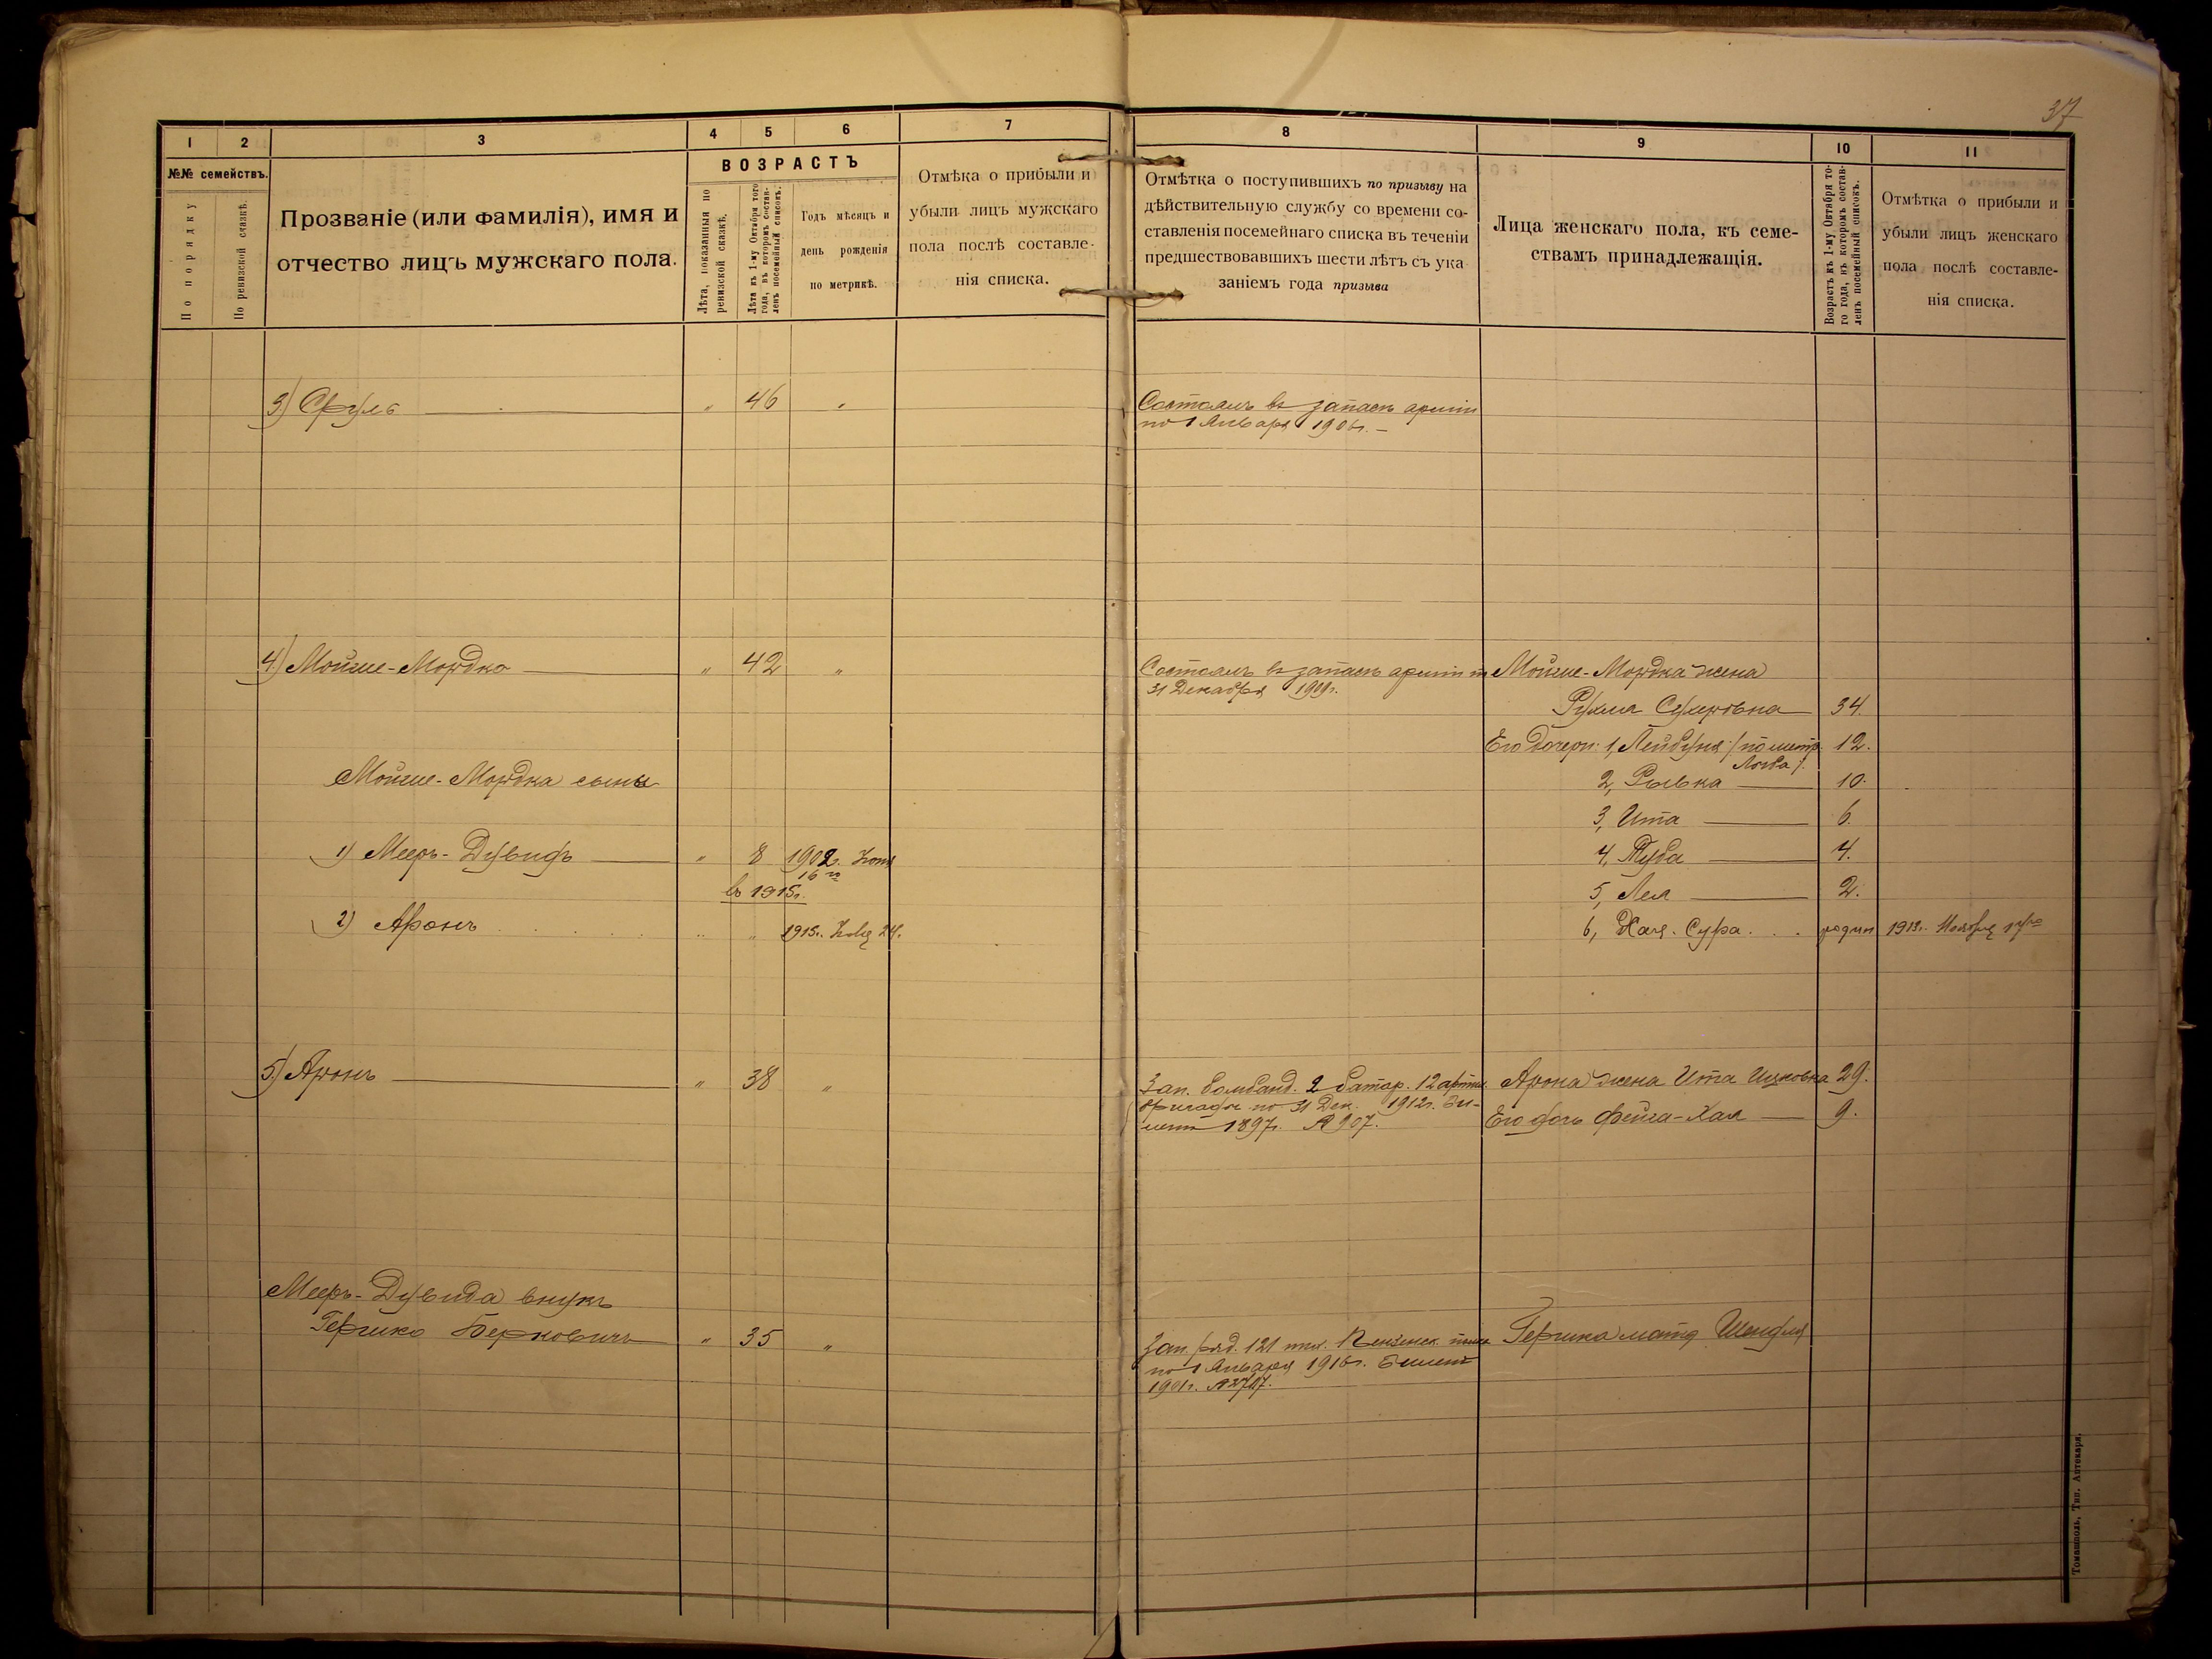 37
1 2 3 4 5 6 7
№№ семействъ.
По порядку
По ревизской сказкѣ.
Прозваніе (или фамилія), имя и
отчество лицъ мужскаго пола.
ВОЗРАСТЪ
Лѣта, показанныя по
ревизской сказкѣ.
Лѣта къ 1-му Октября того
года, въ которомъ состав-
ленъ посемейный списокъ.
Годъ мѣсяцъ и
день рожденія
по метрикѣ.
Отмѣка о прибыли и
убыли лицъ мужскаго
пола послѣ составле-
нія списка.
8 9 10 11
Отмѣтка о поступившихъ по призыву на
дѣйствительную службу со времени со-
ставленія посемейнаго списка въ теченіи
предшествовавшихъ шести лѣтъ съ ука
заніемъ года призыва
Лица женскаго пола, къ семе-
ствамъ принадлежащія.
Возрастъ къ 1-му Октября то-
го года, въ которомъ состав-
ленъ посемейный списокъ.
Отмѣтка о прибыли и
убыли лицъ женскаго
пола послѣ составле-
нія списка.
3) Сруль " 46 "
4) Мойше-Мордко " 42 "
Мойше-Мордка сыны
1) Мееръ-Дувидъ " 8 1902г.
16 го
въ 1915г.
2) Аронъ " " 1915г. 24.
5) Аронъ " 38 "
Мееръ-Дувида внукъ
Гершко Берковичъ " 35 "
Состоялъ въ запасѣ арміи
по 1 Января 1906г.
Состоялъ въ запасѣ арміи по
31 Декабря 1909г.
Мойше-Мордка жена
Рухля Сухеровна 34.
Его дочери: 1, Лейбуня /по метр. 12.
2, Рывка 10.
3, Ита 6.
4, Туба 4.
5, Лея 2.
6, Хая-Сура родил 1913г. Ноября
Зап. бомбанд. 2 батар. 12 артил.
бригады по 31 Дек. 1912г.
1897г. № 907.
Арона жена Ита Ицковна 29.
Его дочь Фейга-Хая 9.
Зап. ряд. 121 пѣх. Пензенск. полка
по 1 Января 1916г.
1901г.
Гершка мать Шендля
Томашполь, Тип. Аптекаря.